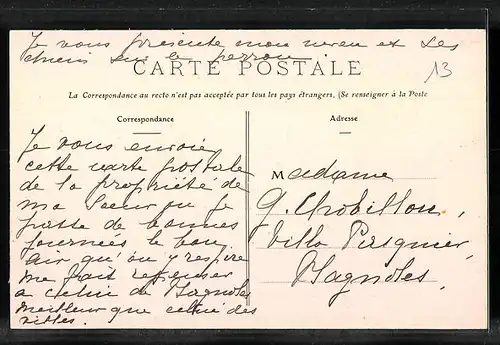 Je vous présente mon neveu et ses
chiens sur le perron.
CARTE POSTALE
13
La Correspondance au recto n'est pas acceptée par tous les pays étrangers, (Se renseigner à la Poste
Correspondance
Adresse
Je vous envoie
cette carte postale
de la propriété de
ma Soeur ou je
passe de bonnes
journées le bon
air qu'on y respire
me fait repenser
a celui de Bagnoles
meilleur que celui des
villes.
Madame
G.
Villa
Bagnoles,